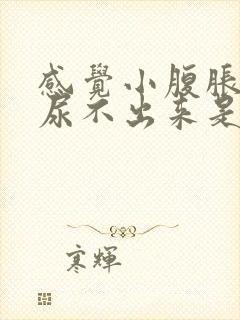 感覺小腹脹
尿不出來是
寒輝